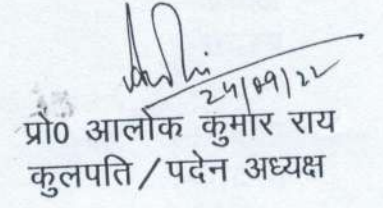 24/09/22
प्रो0 आलोक कुमार राय
कुलपति / पदेन अध्यक्ष